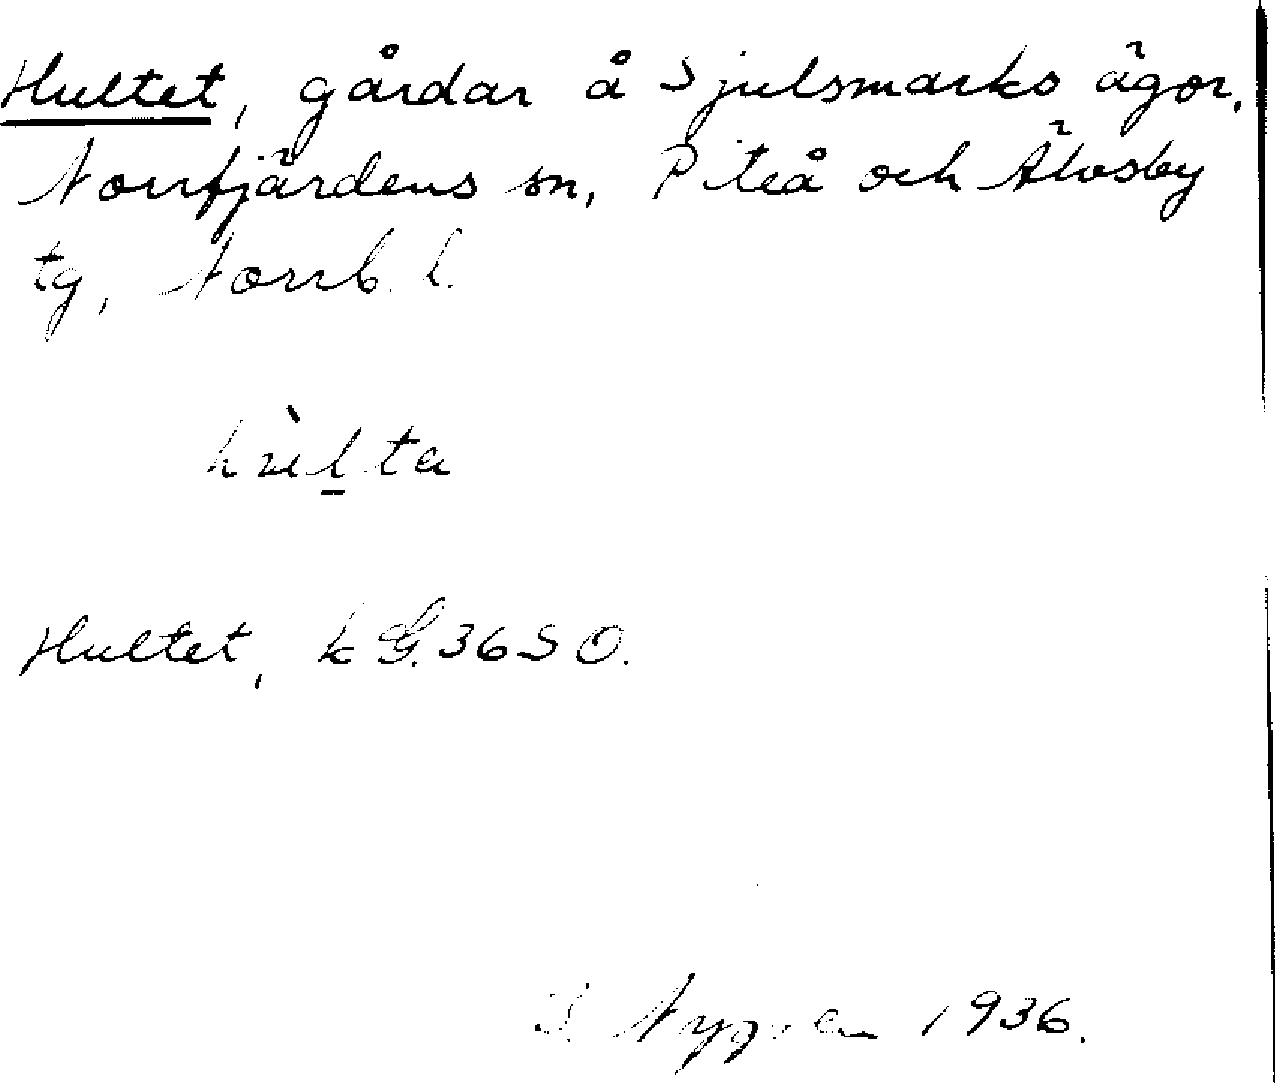 Hultet, gårdar å Sjulsmarks ägor,
Norrfjärdens sn, Piteå och Älvsby
tg, Norrb. l.
Hultet, k G. 36 S O.
1936.